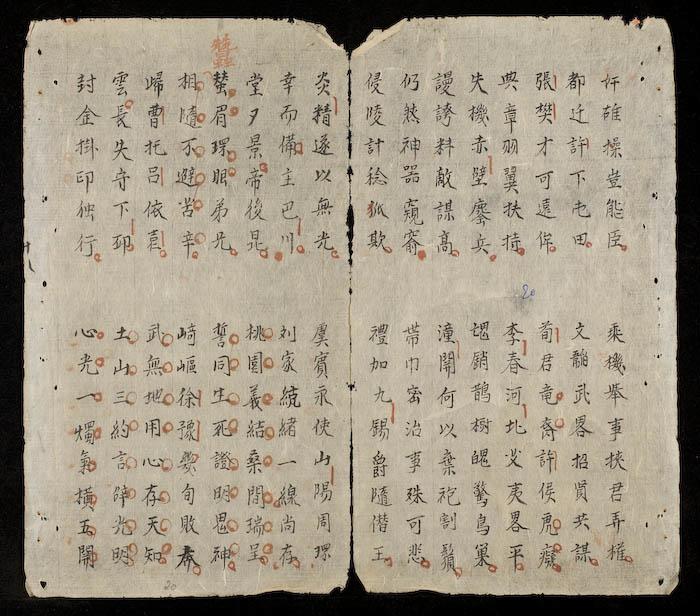 奸雄操豈能臣
乘機舉事挾君弄權
都迁許下屯田
文韜武畧招賢共謀
張樊才可遠侔
荀君竜裔許侯虎癡
典章羽翼扶持
李春河北戈夷畧平
失機赤壁鏖兵
魂銷鵲樹魄驚鳥巢
謾誇料敵謀高
潼關何以棄袍割鬚
仍然神器窺窬
帶巾密治事殊可悲
侵陵計稔狐欺
禮加九錫爵隨僣王
炎精遂以無光
虞賓永使山陽周環
幸而備主巴川
刘家統緒一線尚存
堂夕景帝後昆
桃園義結桑間瑞呈
蠶
眉環眼弟兄
誓同生死證明鬼神
相隨不避苦辛
崎嶇徐豫幾旬敗奔
歸曹托呂依袁
武無地用心存天知
雲長失守下邳
土山三約言辞光明
封金掛印独行
心光一燭氣橫五關
十八
20
20